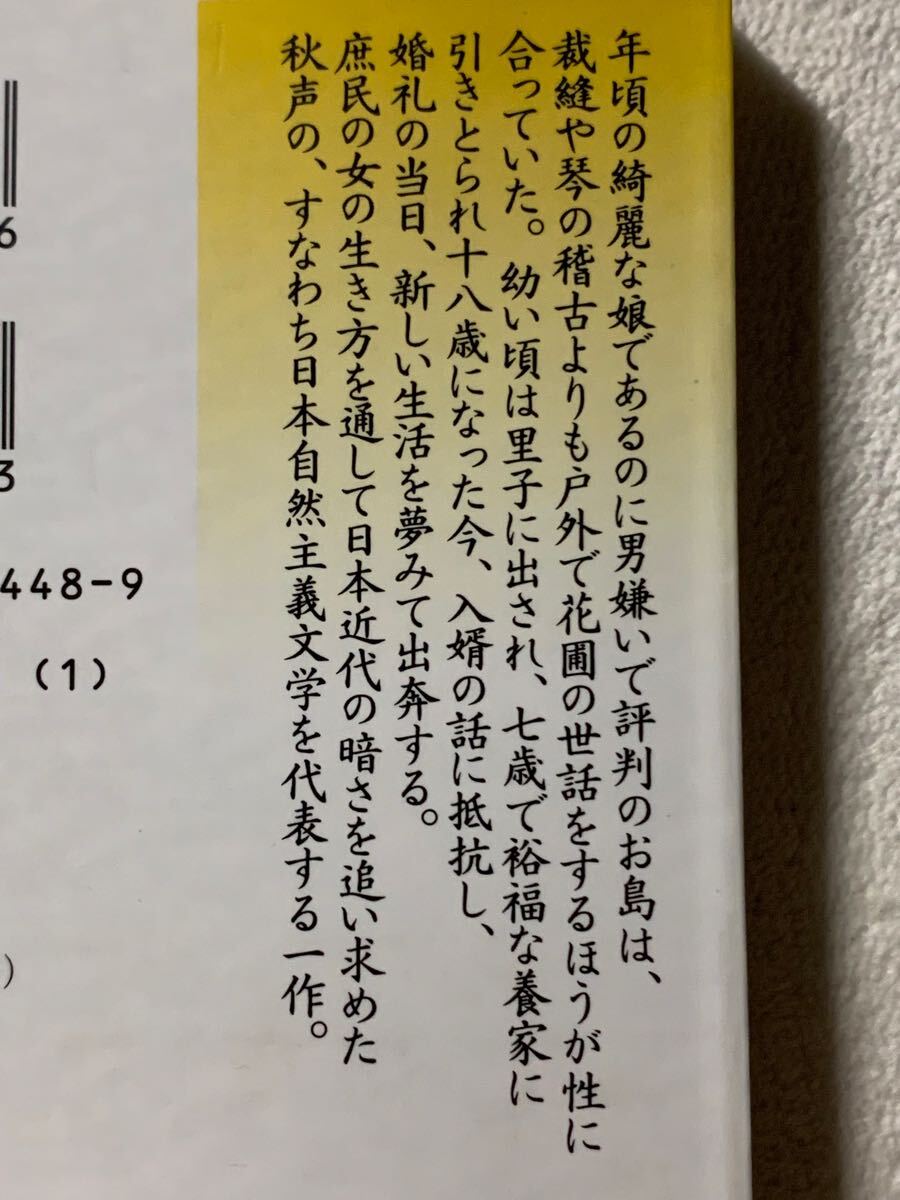 年頃の綺麗な娘であるのに男嫌いで評判のお島は、
裁縫や琴の稽古よりも戸外で花圃の世話をするほうが性に
合っていた。幼い頃は里子に出され、七歳で裕福な養家に
引きとられ十八歳になった今、入婿の話に抵抗し、
婚礼の当日、新しい生活を夢みて出奔する。
庶民の女の生き方を通して日本近代の暗さを追い求めた
秋声の、すなわち日本自然主義文学を代表する一作。
6
3
448-9
(1)
)